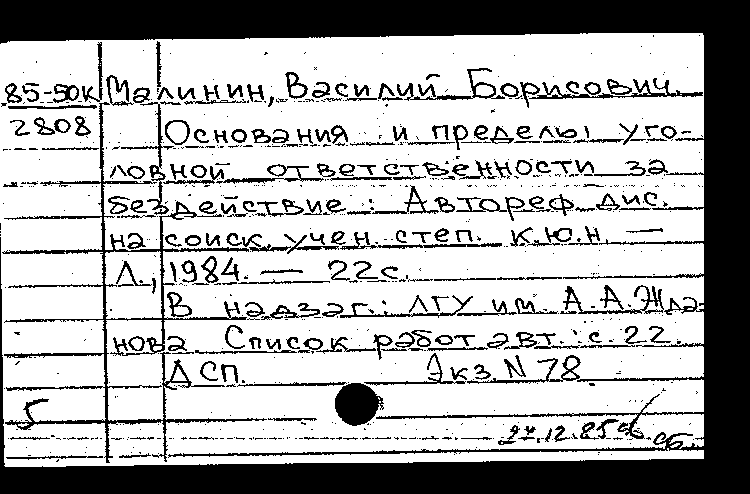 85-50к Малинин, Василий Борисович.
2808 Основания и пределы уго-
ловной ответственности за
бездействие : Автореф. дис.
на соиск. учен. степ. к.ю.н. —
Л., 1984. — 22с.
В надзаг.: ЛГУ им. А.А.Жда-
нова. Список работ авт.: с. 22.
ДСП. Экз. N 78.
5
27.12.85 сб.